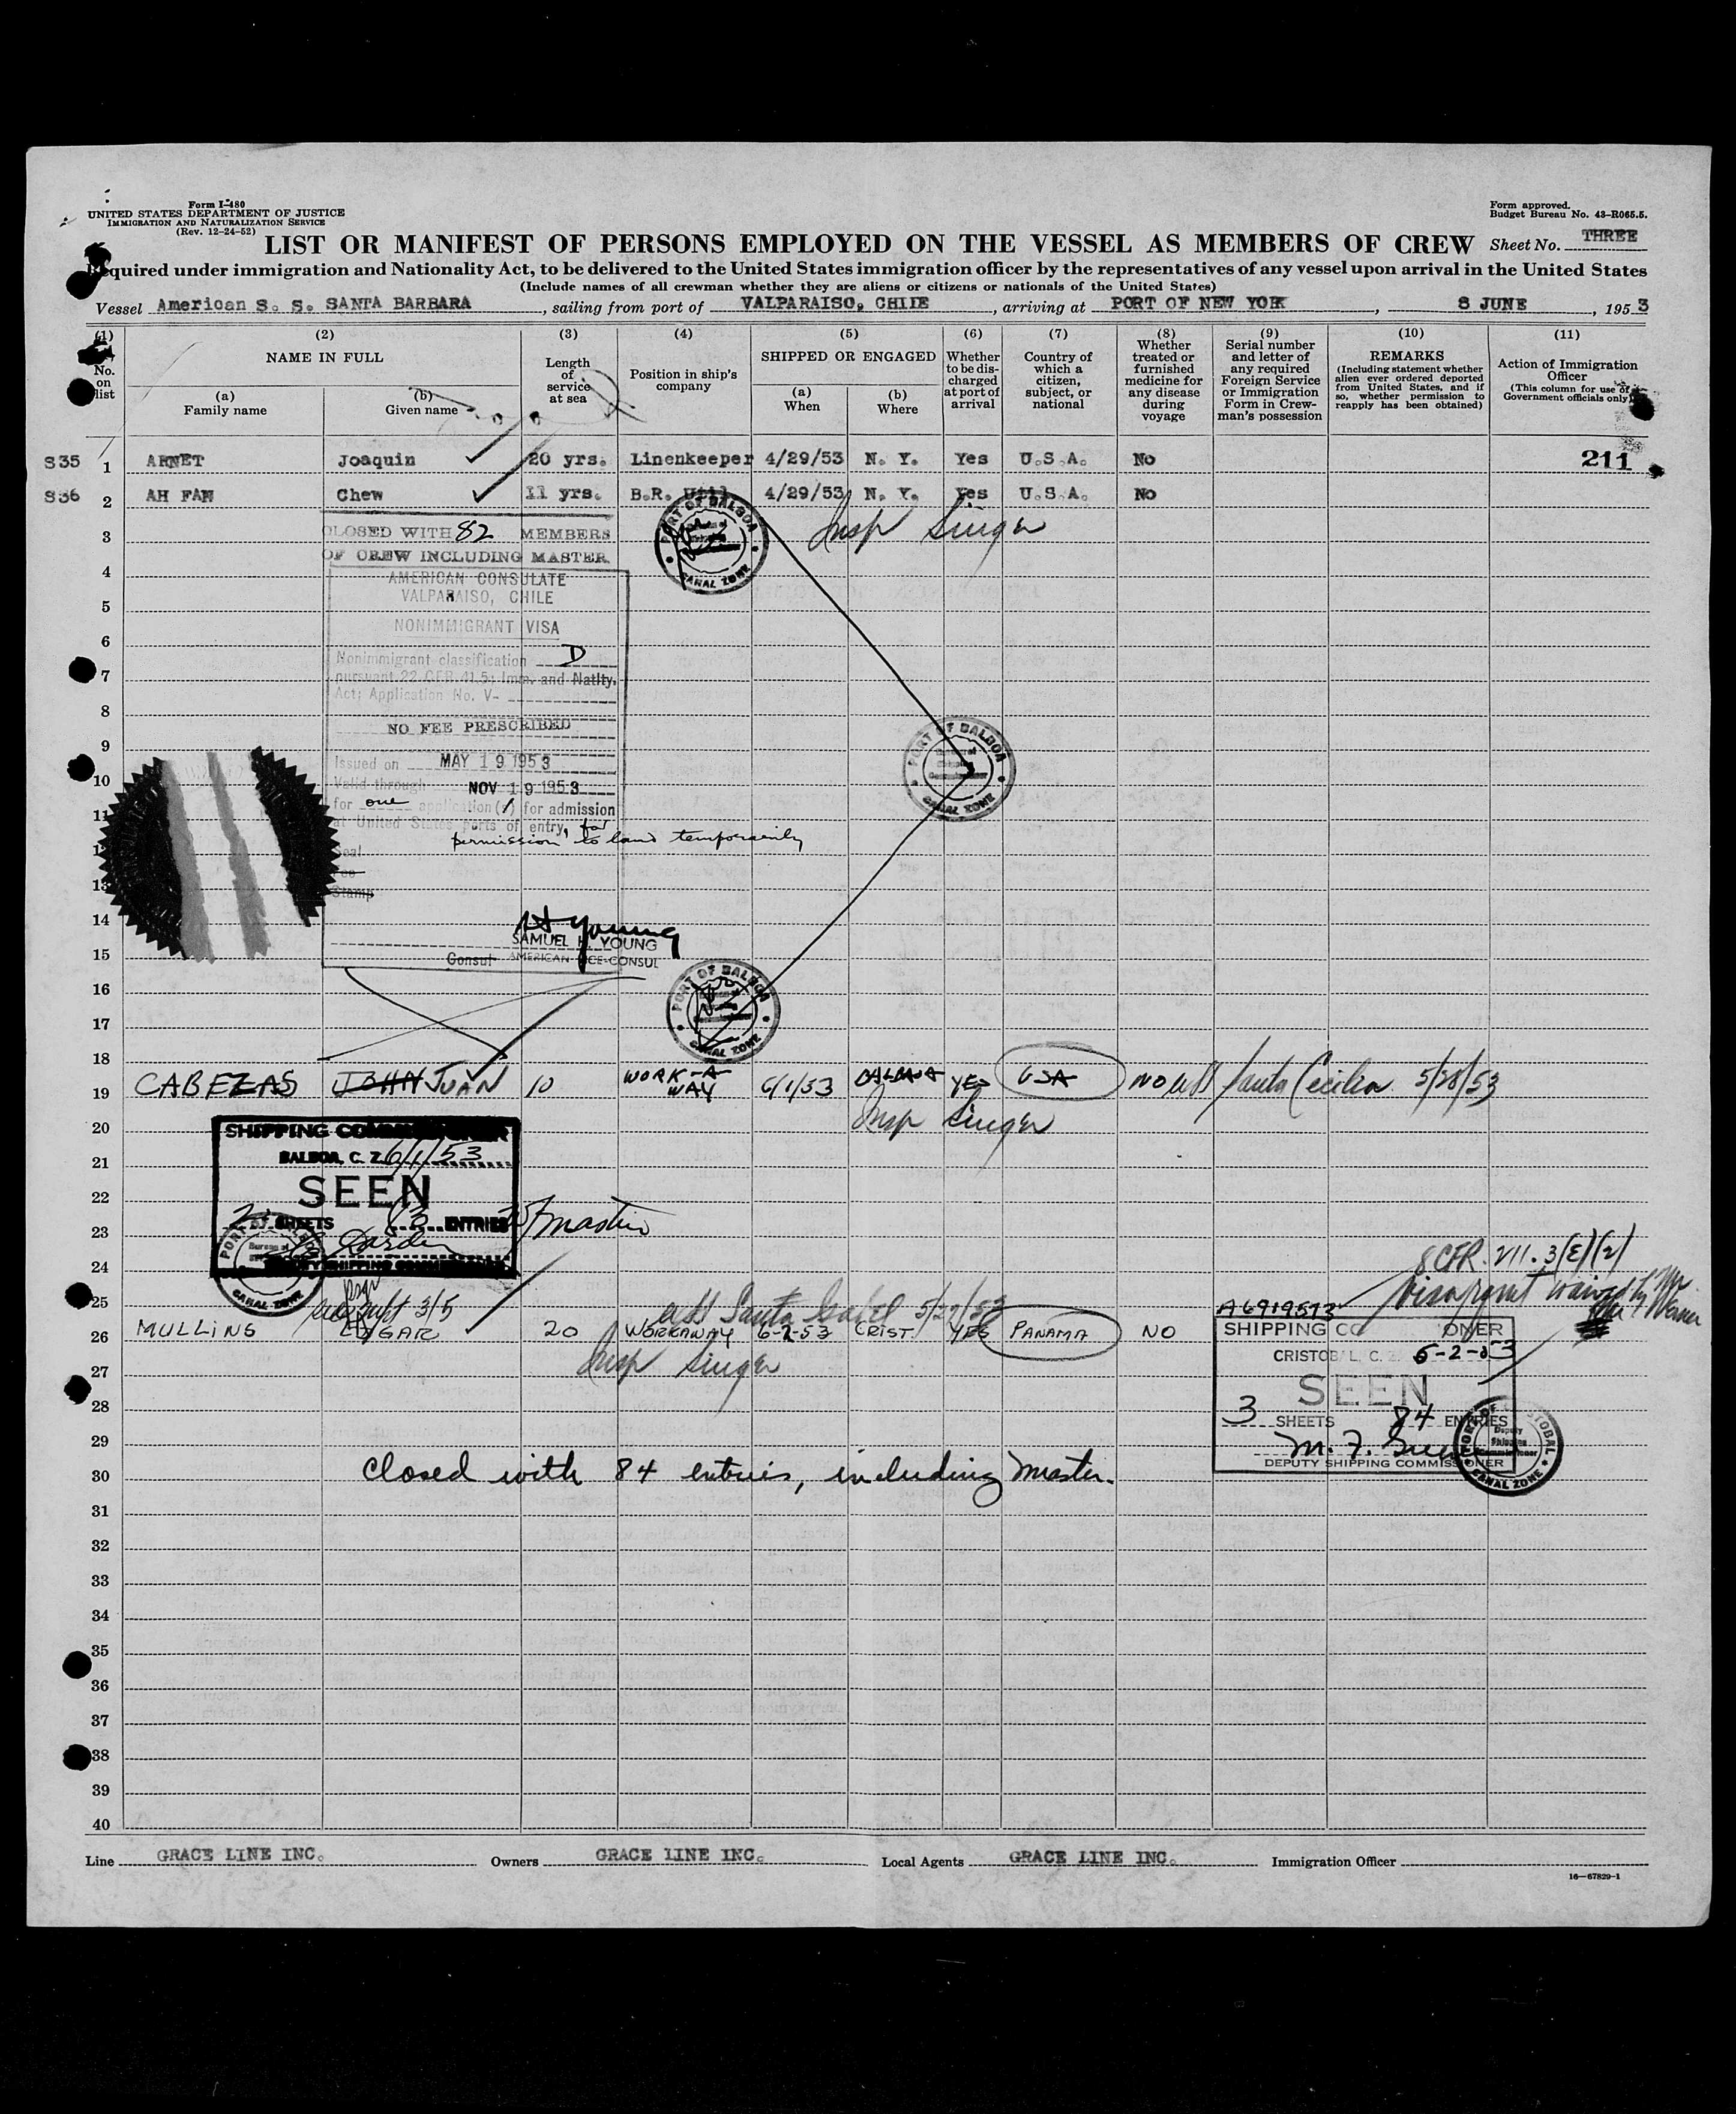 Form I-480
UNITED STATES DEPARTMENT OF JUSTICE
IMMIGRATION AND NATURALIZATION SERVICE
(Rev. 12-24-52)
Form approved.
Budget Bureau No. 43-R065.5.
LIST OR MANIFEST OF PERSONS EMPLOYED ON THE VESSEL AS MEMBERS OF CREW
Sheet No. THREE
Required under immigration and Nationality Act, to be delivered to the United States immigration officer by the representatives of any vessel upon arrival in the United States
(Include names of all crewman whether they are aliens or citizens or nationals of the United States)
Vessel American S. S. SANTA BARBARA, sailing from port of VALPARAISO, CHILE, arriving at PORT OF NEW YORK, 8 JUNE, 1953
(1) (2) (3) (4) (5) (6) (7) (8) (9) (10) (11)
No. on list
NAME IN FULL
(a) Family name
(b) Given name
Length of service at sea
Position in ship's company
SHIPPED OR ENGAGED
(a) When
(b) Where
Whether to be discharged at port of arrival
Country of which a citizen, subject, or national
Whether treated or furnished medicine for any disease during voyage
Serial number and letter of any required Foreign Service or Immigration Form in Crewman's possession
REMARKS
(Including statement whether alien ever ordered deported from United States, and if so, whether permission to reapply has been obtained)
Action of Immigration Officer
(This column for use of Government officials only)
S35 1 ARNET Joaquin 20 yrs. Linenkeeper 4/29/53 N. Y. Yes U.S.A. No 211
S36 2 AH FAN Chew 11 yrs. B.R. Util 4/29/53 N. Y. Yes U.S.A. No
3 Insp Singer
CLOSED WITH 82 MEMBERS
OF CREW INCLUDING MASTER
PORT OF BALBOA
CANAL ZONE
4
AMERICAN CONSULATE
VALPARAISO, CHILE
5
NONIMMIGRANT VISA
6
Nonimmigrant classification D
7
pursuant 22 CFR 41.5; Imm. and Natlty.
Act; Application No. V-
8
NO FEE PRESCRIBED
9
PORT OF BALBOA
CANAL ZONE
Issued on MAY 19 1953
10
Valid through NOV 19 1953
for one application(s) for admission
11
at United States ports of entry, for
permission to land temporarily
12
Seal
Fee
13
Stamp
14
SAMUEL H. YOUNG
15
Consul AMERICAN VICE-CONSUL
PORT OF BALBOA
CANAL ZONE
16
17
18
19 CABEZAS JOHN JUAN 10 WORK-A-WAY 6/1/53 BALBOA YES USA NO Santa Cecilia 5/28/53
20 Insp Singer
SHIPPING COMMISSIONER
BALBOA, C. Z. 6/1/53
21
SEEN
22
2 SHEETS ENTRIES
23
master
24
DEPUTY SHIPPING COMMISSIONER
PORT OF BALBOA
Bureau of
CANAL ZONE
8 CFR. 211.3(E)(2)
Visa waived by
25 3/5 Santa Isabel A6919573
26 MULLINS EDGAR 20 WORKAWAY 6-2-53 CRIST. YES PANAMA NO
27 Insp Singer
SHIPPING CO ONER
CRISTOBAL, C. Z. 6-2-53
28
SEEN
3 SHEETS 84 ENTRIES
29
DEPUTY SHIPPING COMMISSIONER
PORT OF CRISTOBAL
Deputy
Shipping
Commissioner
CANAL ZONE
30 Closed with 84 entries, including Master.
31
32
33
34
35
36
37
38
39
40
Line GRACE LINE INC. Owners GRACE LINE INC. Local Agents GRACE LINE INC. Immigration Officer
16—67829-1